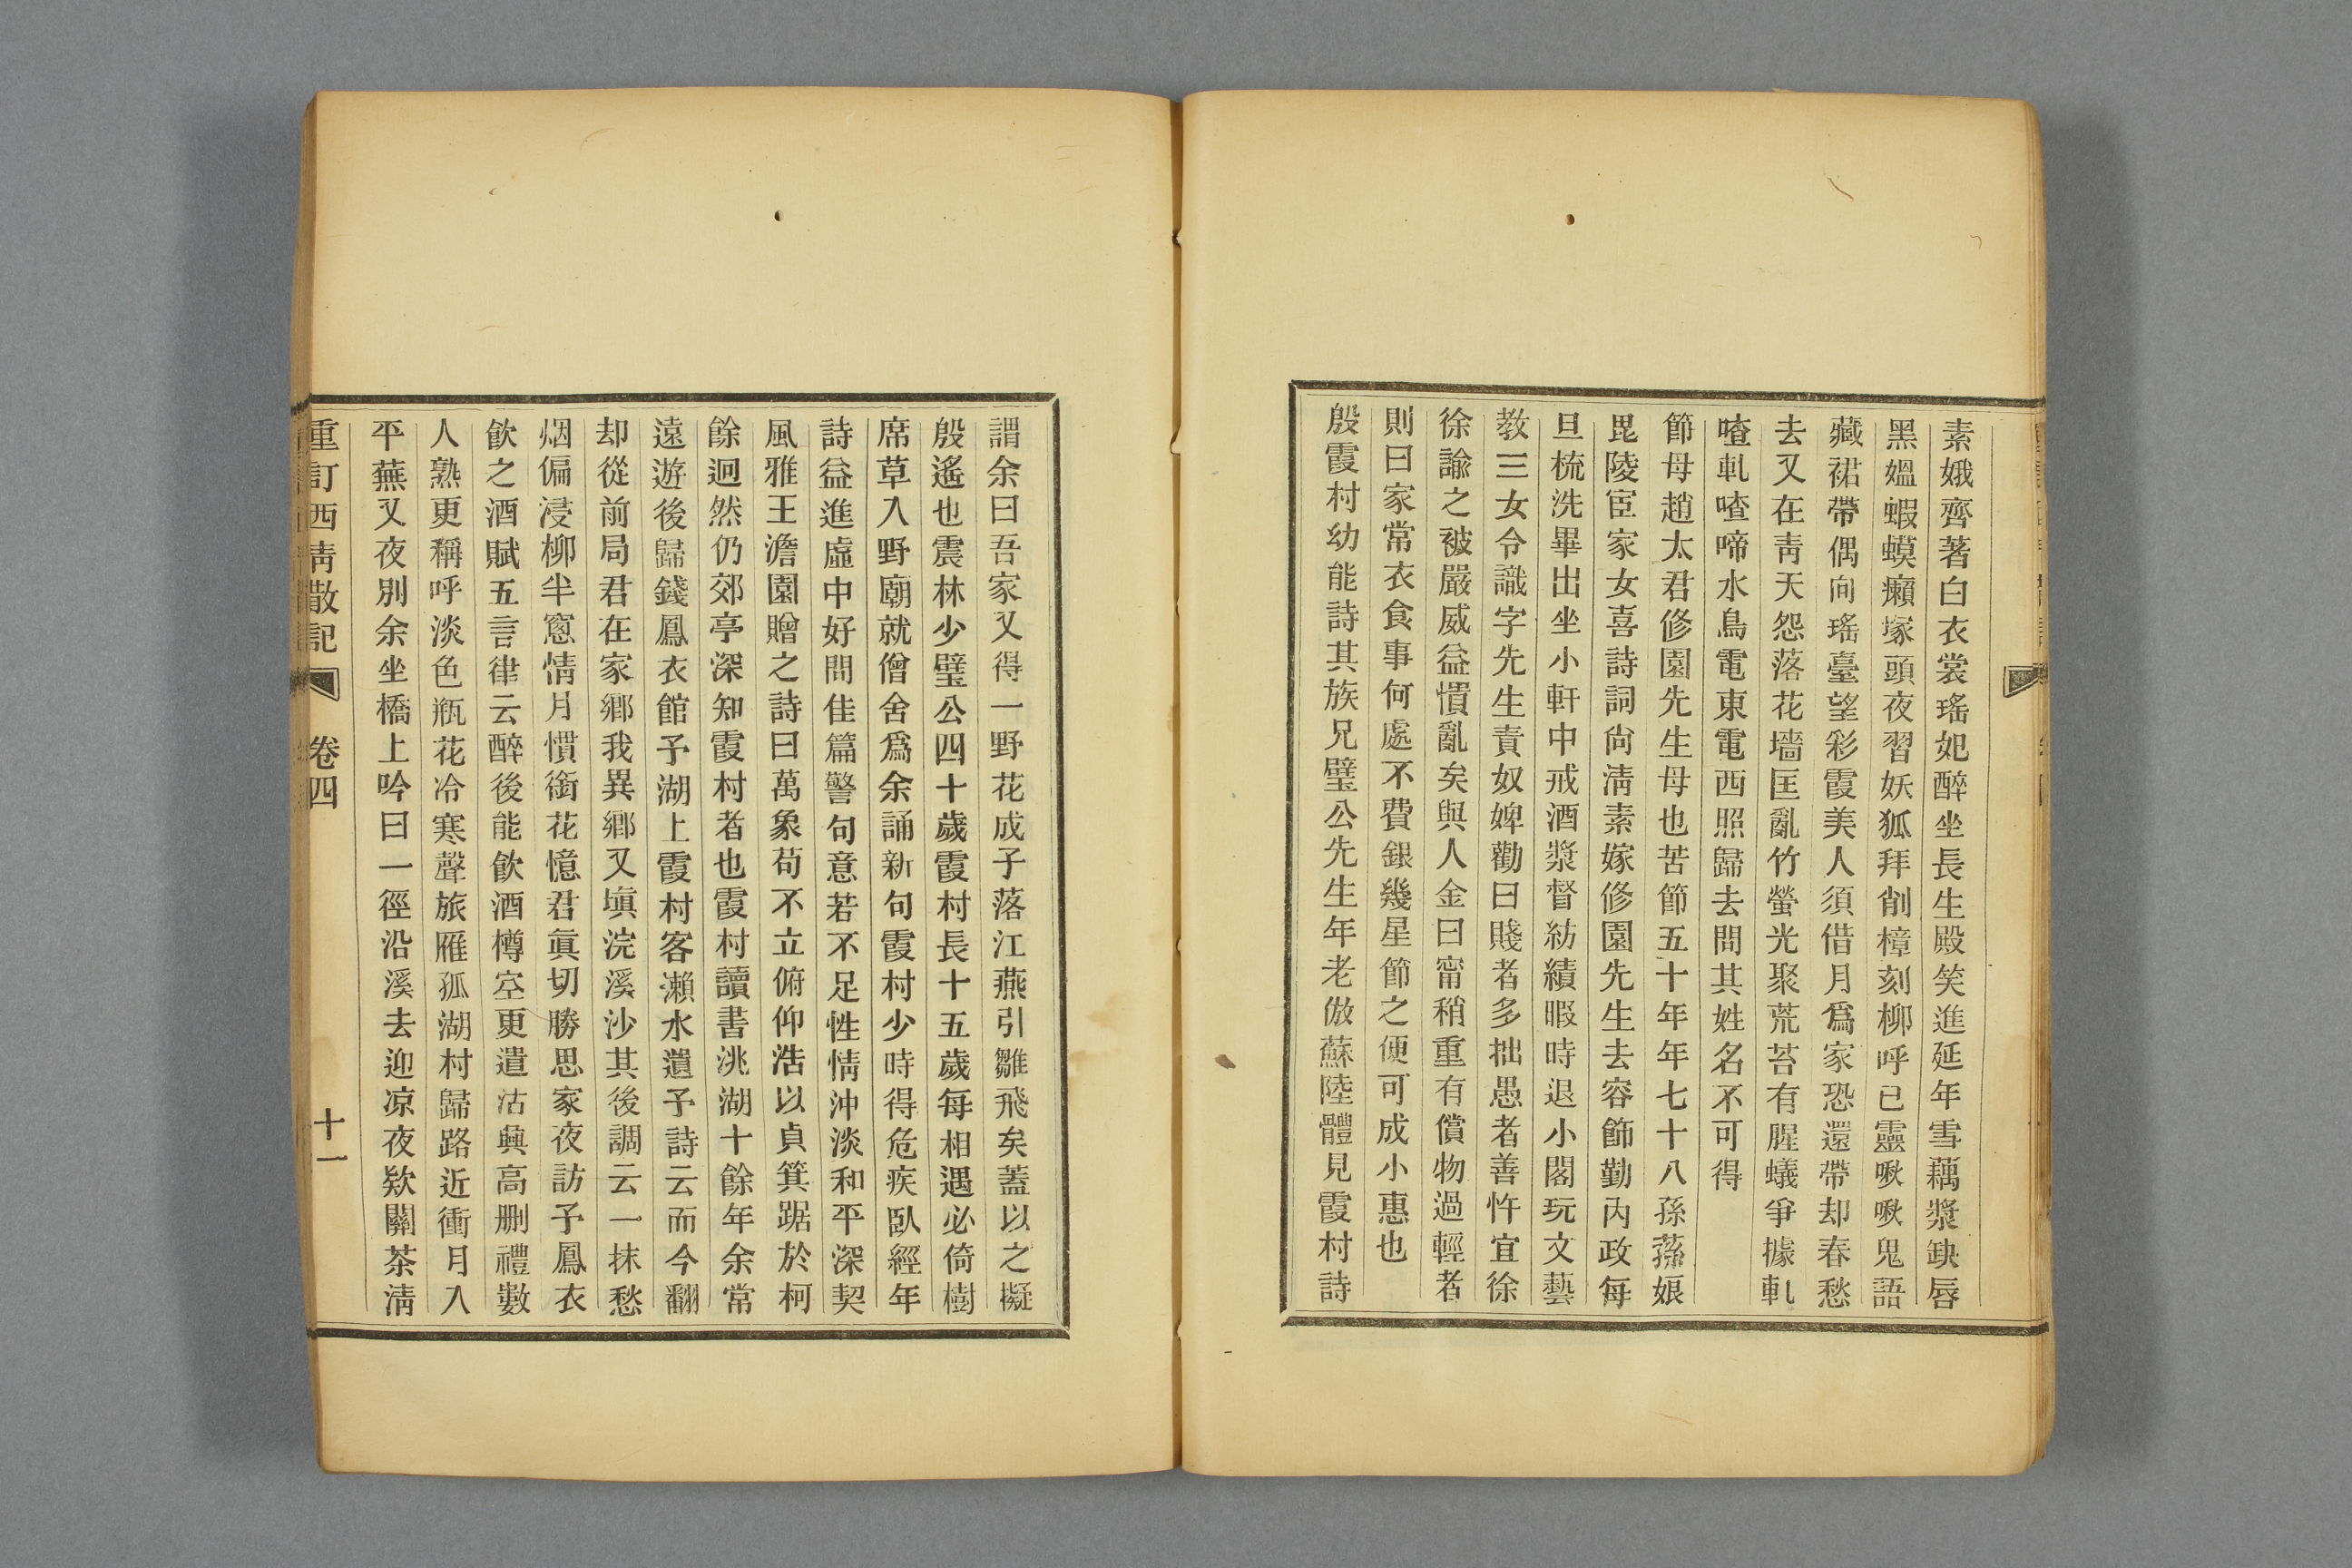 素娥齊著白衣裳瑤妃醉坐長生殿笑進延年雪藕漿缺唇
黑媼蝦蟆癩塚頭夜習妖狐拜削樟刻柳呼已靈啾啾鬼語
藏裙帶偶向瑤臺望彩霞美人須借月爲家恐還帶却春愁
去又在靑天怨落花墻匡亂竹螢光聚荒苔有腥蟻爭據軋
喳軋喳啼水鳥電東電西照歸去問其姓名不可得
節母趙太君修園先生母也苦節五十年年七十八孫蓀娘
毘陵宦家女喜詩詞尙淸素嫁修園先生去容飾勤內政每
旦梳洗畢出坐小軒中戒酒漿督紡績暇時退小閣玩文藝
教三女令識字先生責奴婢勸曰賤者多拙愚者善忤宜徐
徐諭之被嚴威益慣亂矣與人金曰甯稍重有償物過輕者
則曰家常衣食事何處不費銀幾星節之便可成小惠也
殷霞村幼能詩其族兄璧公先生年老倣蘇陸體見霞村詩
謂余曰吾家又得一野花成子落江燕引雛飛矣蓋以之擬
殷遙也震林少璧公四十歲霞村長十五歲每相遇必倚樹
席草入野廟就僧舍爲余誦新句霞村少時得危疾臥經年
詩益進虛中好問佳篇警句意若不足性情沖淡和平深契
風雅王澹園贈之詩曰萬象苟不立俯仰浩以貞箕踞於柯
餘迥然仍郊亭深知霞村者也霞村讀書洮湖十餘年余常
遠遊後歸錢鳳衣館予湖上霞村客瀨水遺予詩云而今翻
却從前局君在家鄉我異鄉又塡浣溪沙其後調云一抹愁
烟偏浸柳半窻情月慣銜花憶君眞切勝思家夜訪予鳳衣
飮之酒賦五言律云醉後能飮酒樽空更遣沽興高刪禮數
人熟更稱呼淡色瓶花冷寒聲旅雁孤湖村歸路近衝月入
平蕪又夜別余坐橋上吟曰一徑沿溪去迎凉夜欵關茶淸
重訂西靑散記 卷四 十一